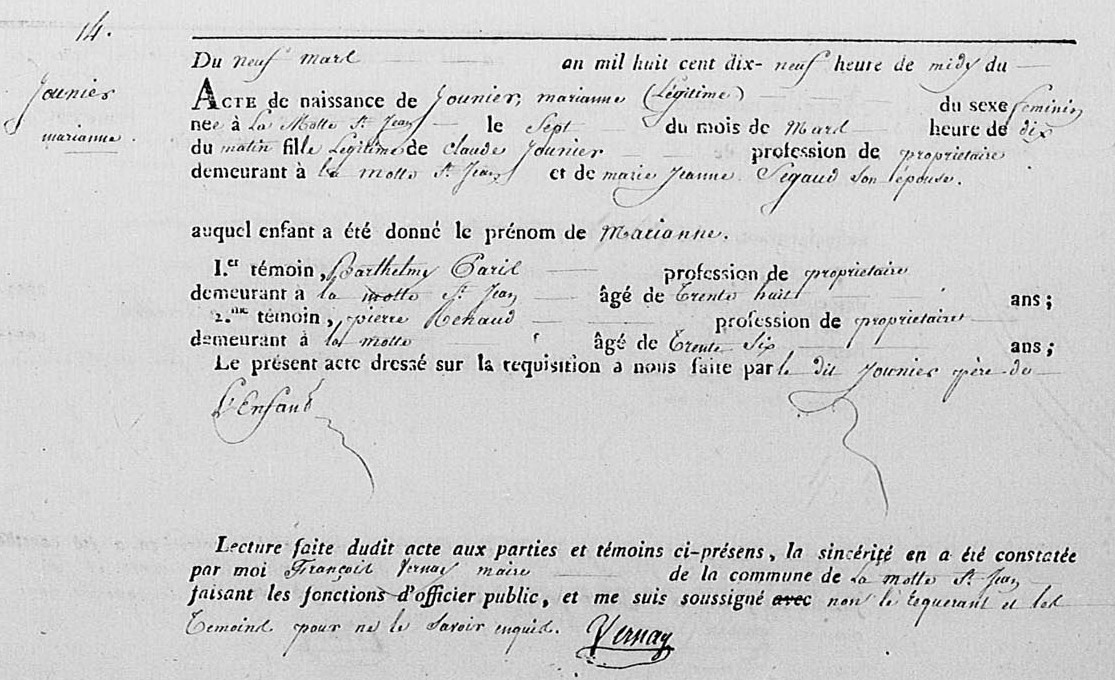 14.
Jounier
marianne.
Du neuf mars an mil huit cent dix- neuf heure de midy du
ACTE de naissance de Jounier, marianne (Légitime) du sexe féminin
née à La Motte St Jean le Sept du mois de Mars heure de dix
du matin fille Légitime de claude Jounier profession de proprietaire
demeurant à la motte St Jean et de marie Jeanne Segaud son épouse.
auquel enfant a été donné le prénom de Marianne.
I.er témoin, Barthelmy Paris profession de proprietaire
demeurant à la motte St Jean âgé de Trente huit ans ;
2.me témoin, pierre Renaud profession de proprietaire
demeurant à la motte âgé de Trente Six ans ;
Le présent acte dressé sur la requisition a nous faite par le dit Jounier père de
L'Enfant
Lecture faite dudit acte aux parties et témoins ci-présens, la sincérité en a été constatée
par moi François Vernay maire de la commune de La motte St Jean
faisant les fonctions d'officier public, et me suis soussigné avec non le requerant et les
Temoins pour ne le Savoir enquis. Vernay